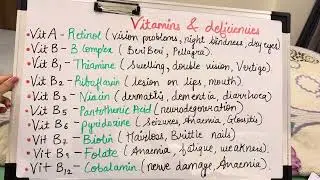 Vitamins & deficiencies
• Vit A - Retinol (vision problems, night blindness, dry eyes)
• Vit B - B Complex (BeriBeri, Pellagra).
• Vit B1 - Thiamine (Swelling, double vision, Vertigo).
• Vit B2 - Riboflavin (lesion on lips, mouth).
• Vit B3 - Niacin (dermatitis, dementia, diarrhoea)
• Vit B5 - Pantothenic Acid (neurodegeneration)
• Vit B6 - pyridoxine (Seizures, Anaemia, Glositis)
• Vit B7 - Biotin (Hairloss, Brittle nails)
• Vit B9 - Folate (Anaemia, fatigue, weakness).
• Vit B12 - Cobalamin (nerve damage, Anaemia)